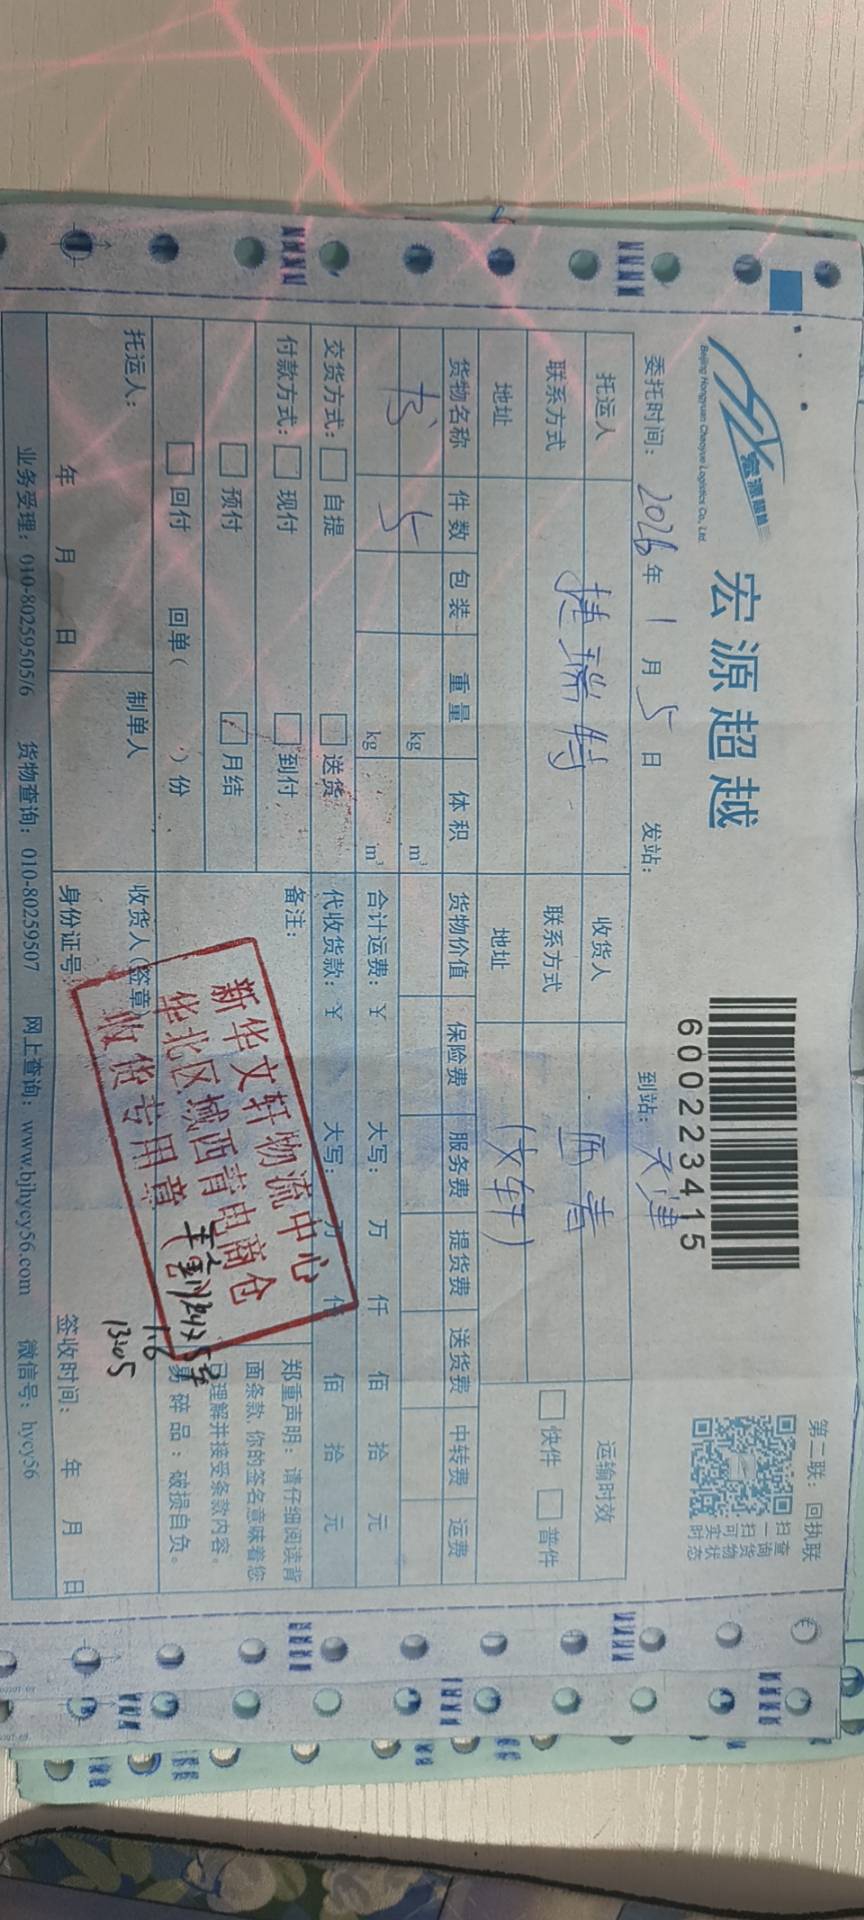 宏源超越
Beijing Hongyuan Chaoyue Logistics Co., Ltd.
宏源超越
6002223415
第二联：回执联
扫一扫
查询货物
可实时状态
委托时间：2026年1月5日 发站： 到站：天津
托运人 捷瑞特 收货人 西青 运输时效
联系方式 联系方式 □快件 □普件
地址 地址 (文轩)
货物名称 件数 包装 重量 体积 货物价值 保险费 服务费 提货费 送货费 中转费 运费
书 5 kg m³
kg m³ 合计运费：￥ 大写： 万 仟 佰 拾 元
交货方式：□自提 □送货 代收货款：￥ 大写： 万 仟 佰 拾 元
付款方式：□现付 □到付 备注：
□预付 □月结
□回付 回单( )份
郑重声明：请仔细阅读背
面条款，你的签名意味着您
已理解并接受条款内容。
易碎品：破损自负。
新华文轩物流中心
华北区域西青电商仓
收货专用章
1.6
13:05
托运人： 制单人 收货人(签章)
年 月 日 身份证号： 签收时间： 年 月 日
业务受理：010-80259505/6 货物查询：010-80259507 网上查询：www.bjhycy56.com 微信号：hycy56